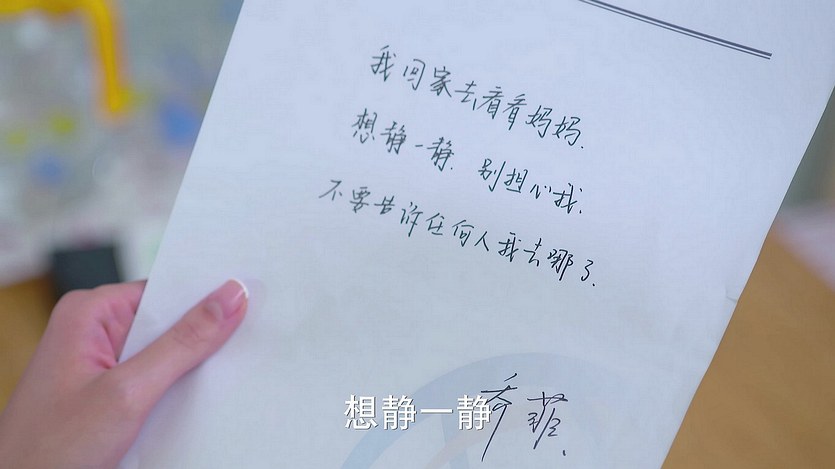 我回家去看看妈妈.
想静一静. 别担心我.
不要告诉任何人我去哪了.
乔菲.
想静一静